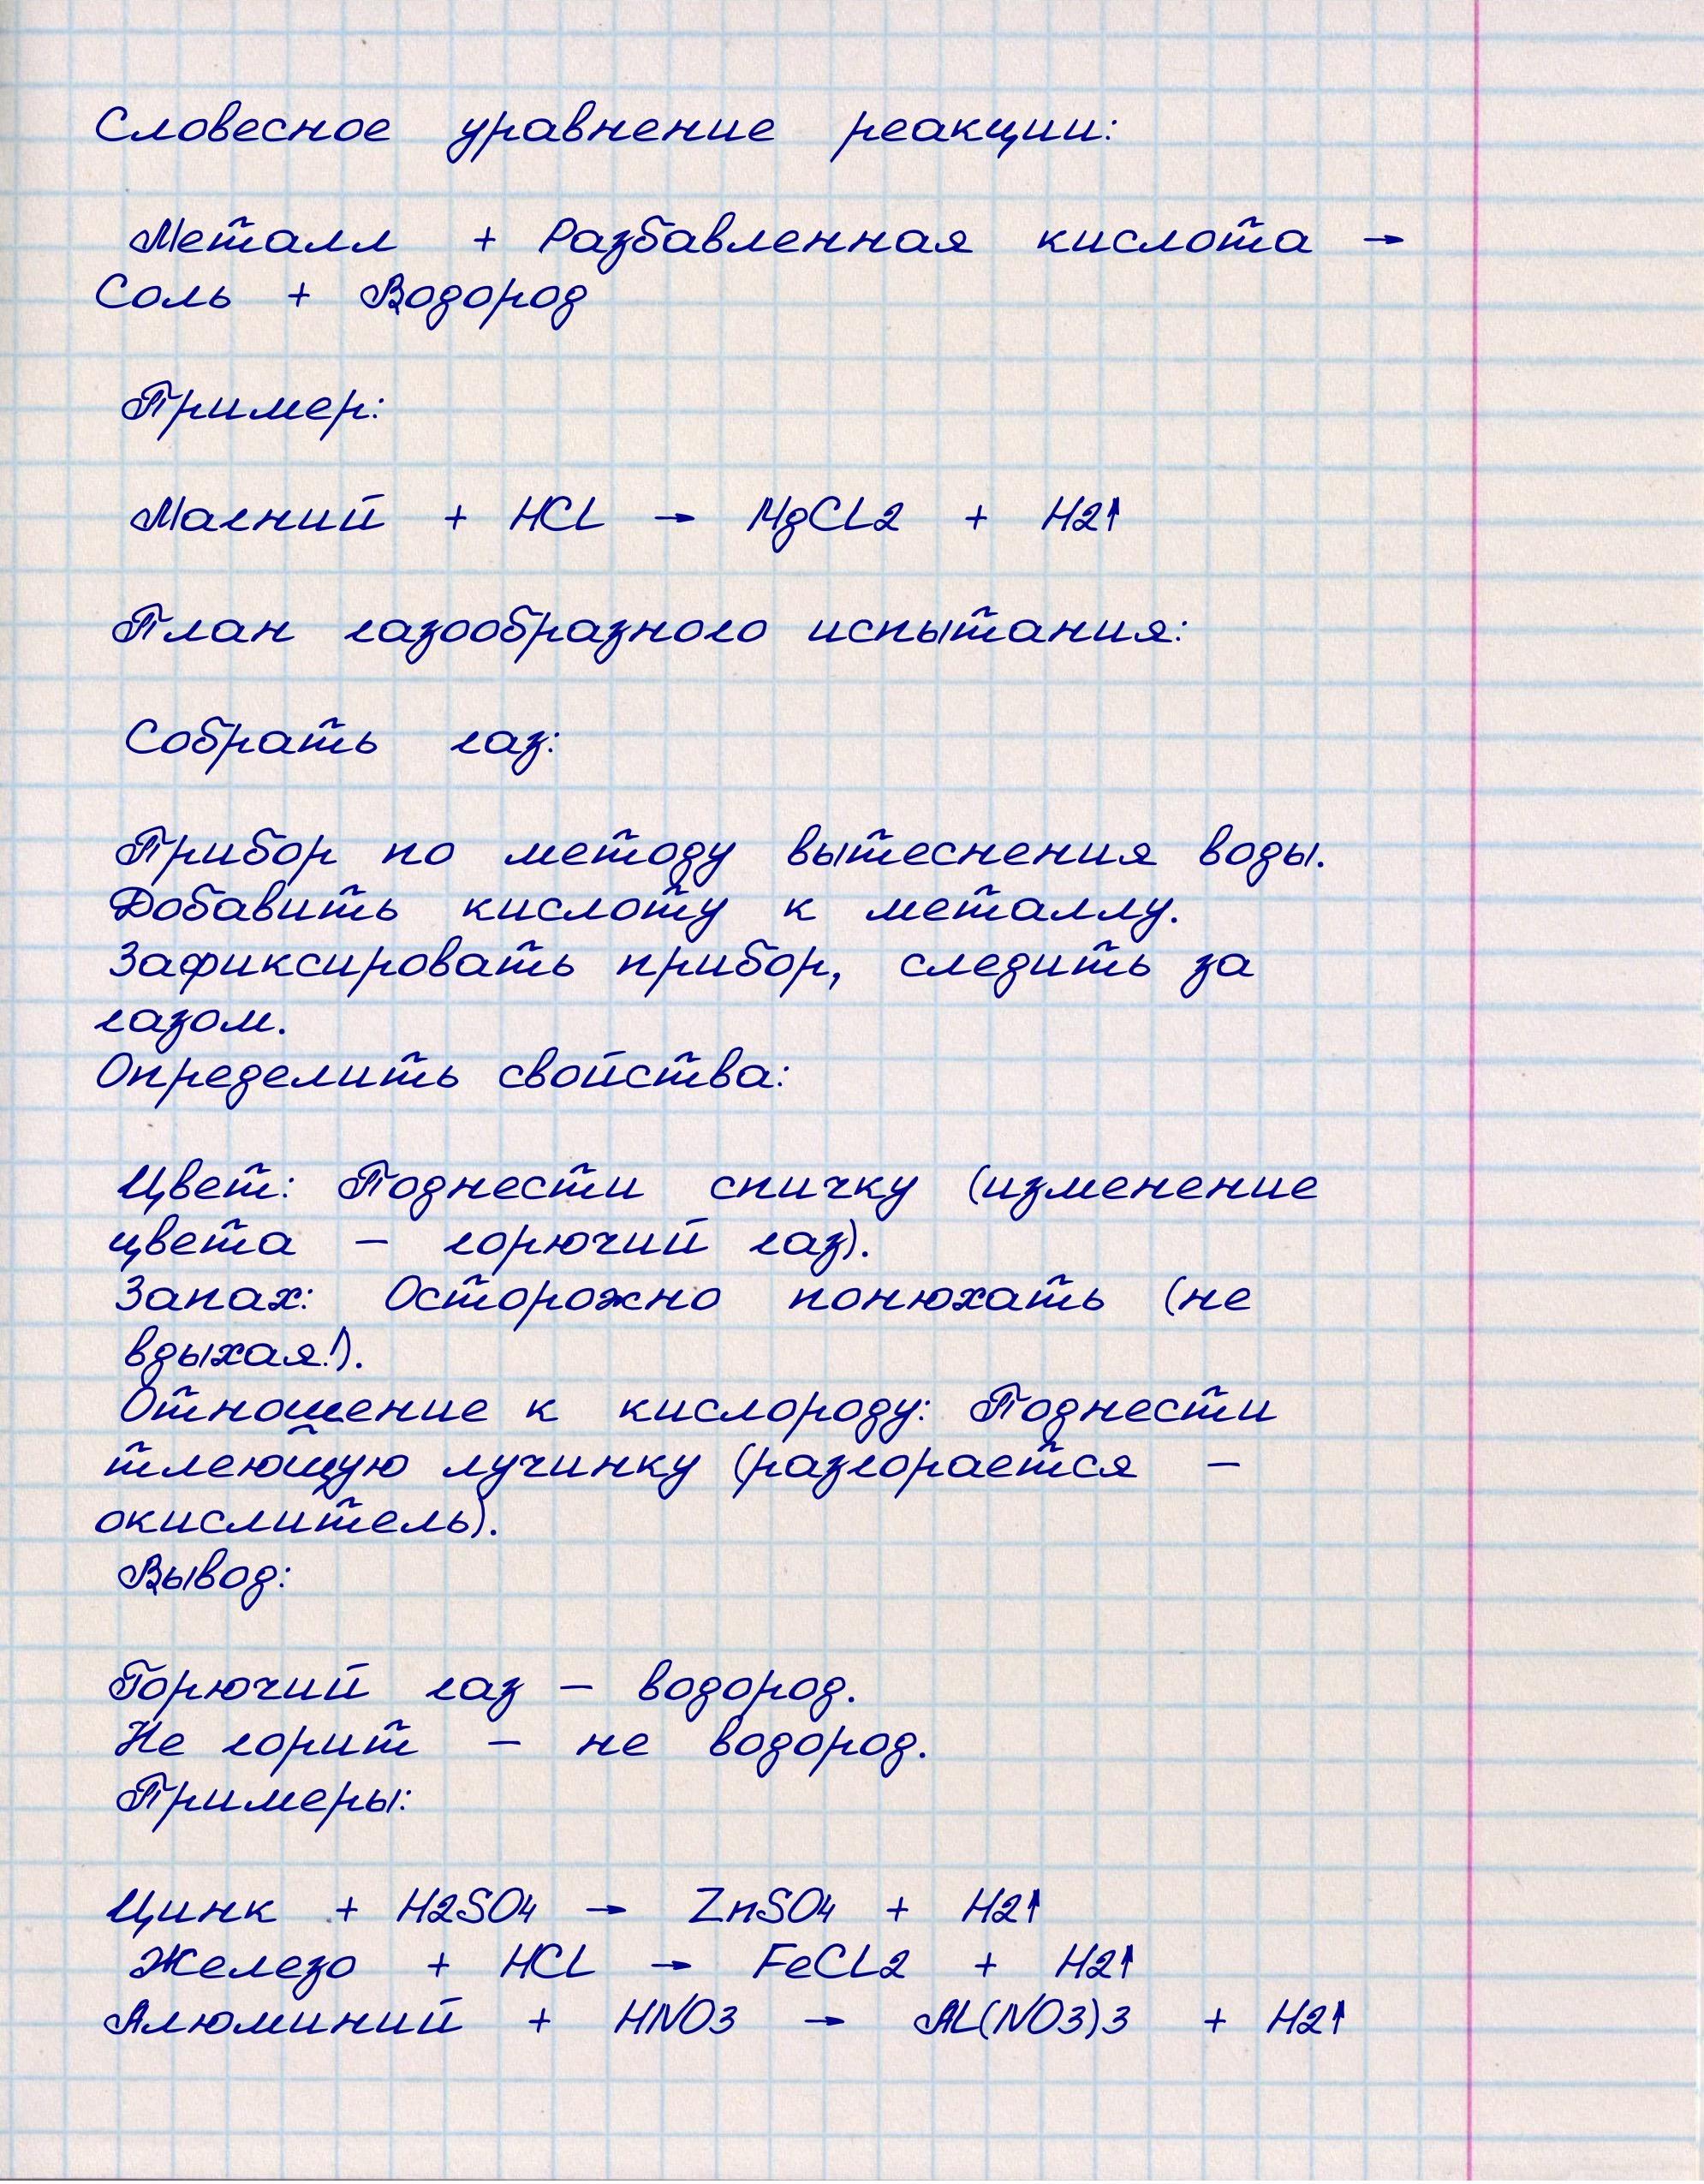 Словесное уравнение реакции:
Металл + Разбавленная кислота →
Соль + Водород
Пример:
Магний + HCl → MgCl2 + H2↑
План газообразного испытания:
Собрать газ:
Прибор по методу вытеснения воды.
Добавить кислоту к металлу.
Зафиксировать прибор, следить за
газом.
Определить свойства:
Цвет: Поднести спичку (изменение
цвета – горючий газ).
Запах: Осторожно понюхать (не
вдыхая!).
Отношение к кислороду: Поднести
тлеющую лучинку (разгорается –
окислитель).
Вывод:
Горючий газ – водород.
Не горит – не водород.
Примеры:
Цинк + H2SO4 → ZnSO4 + H2↑
Железо + HCl → FeCl2 + H2↑
Алюминий + HNO3 → Al(NO3)3 + H2↑